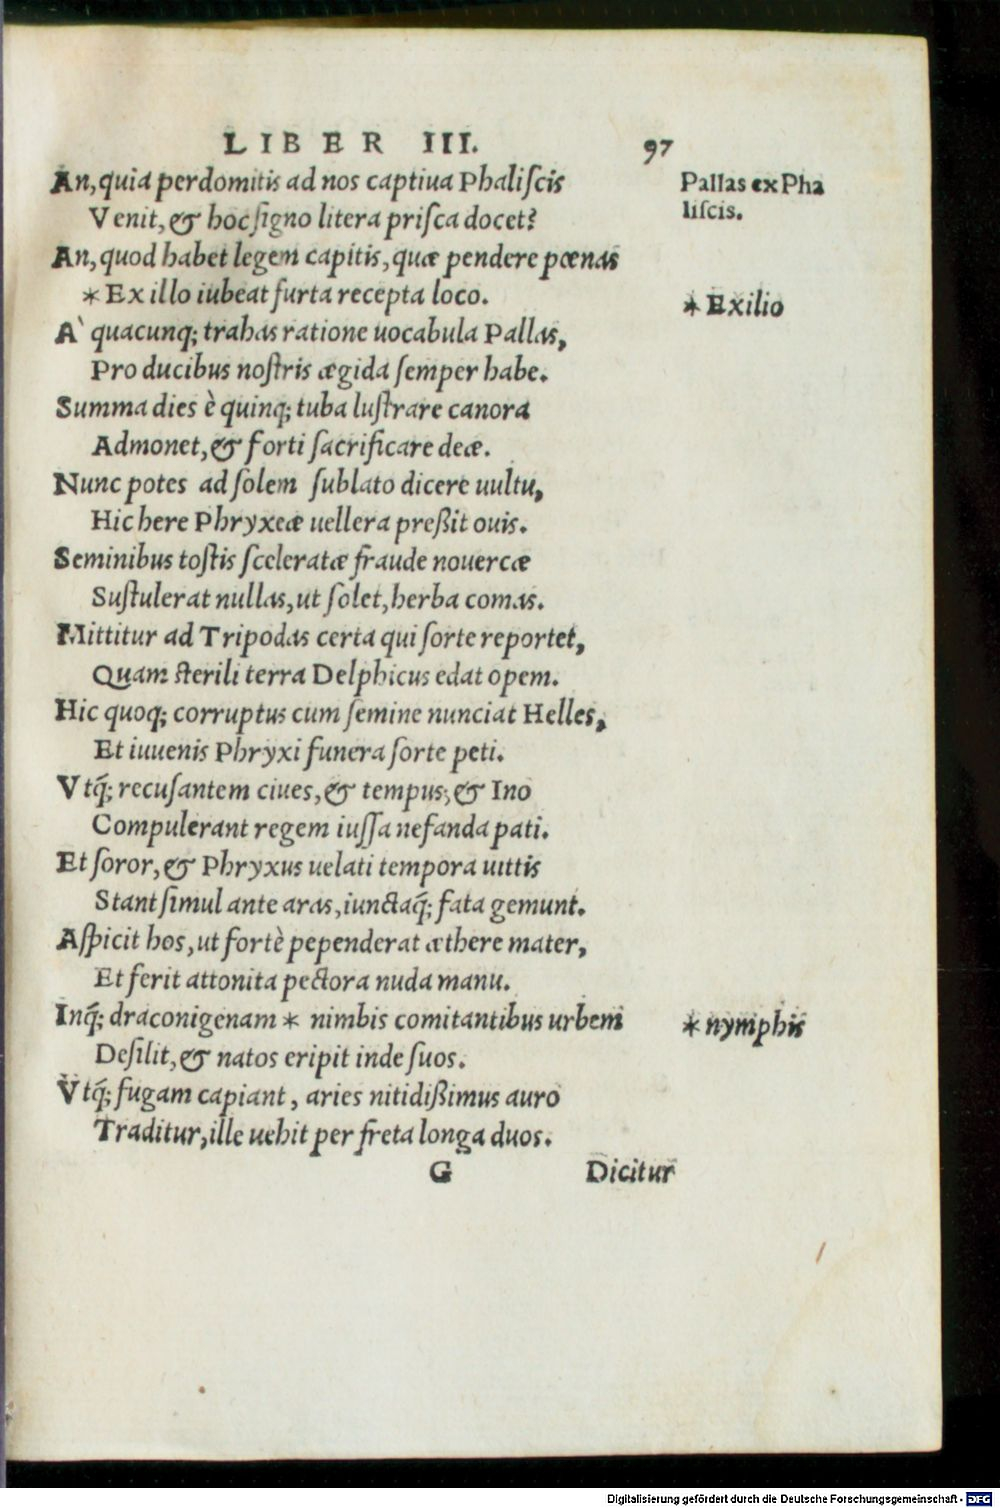 LIBER III. 97
An, quia perdomitis ad nos captiua Phaliſcis
Venit, & hoc ſigno litera priſca docet?
An, quod habet legem capitis, quæ pendere pœnas
* Ex illo iubeat furta recepta loco.
A` quacunq; trahas ratione uocabula Pallas,
Pro ducibus noſtris ægida ſemper habe.
Summa dies è quinq; tuba luſtrare canora
Admonet, & forti ſacrificare deæ.
Nunc potes ad ſolem ſublato dicere uultu,
Hic here Phryxeæ uellera preßit ouis.
Seminibus toſtis ſceleratæ fraude nouercæ
Suſtulerat nullas, ut ſolet, herba comas.
Mittitur ad Tripodas certa qui ſorte reportet,
Quam ſterili terra Delphicus edat opem.
Hic quoq; corruptus cum ſemine nunciat Helles,
Et iuuenis Phryxi funera ſorte peti.
Vtq̃; recuſantem ciues, & tempus, & Ino
Compulerant regem iuſſa nefanda pati.
Et ſoror, & Phryxus uelati tempora uittis
Stant ſimul ante aras, iunctaq̃; fata gemunt.
Aſpicit hos, ut fortè pependerat æthere mater,
Et ferit attonita pectora nuda manu.
Inq̃; draconigenam * nimbis comitantibus urbem
Deſilit, & natos eripit inde ſuos.
Vtq̃; fugam capiant, aries nitidißimus auro
Traditur, ille uehit per freta longa duos.
G Dicitur
Pallas ex Pha
liſcis.
* Exilio
* nymphis
Digitalisierung gefördert durch die Deutsche Forschungsgemeinschaft - DFG